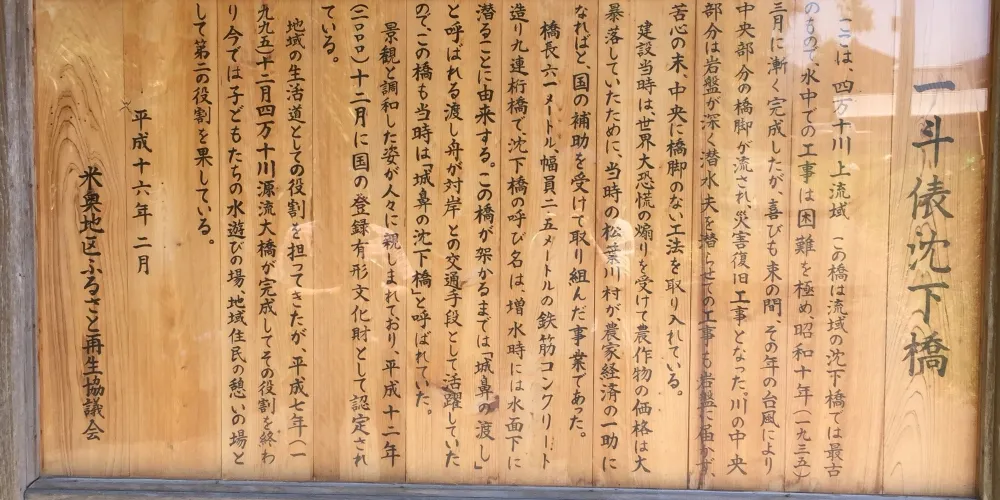 一斗俵沈下橋
ここは、四万十川上流域 この橋は流域の沈下橋では最古
のもので水中での工事は困難を極め昭和十年(一九三五)
三月に漸く完成したが、喜びも束の間、その年の台風により
中央部分の橋脚が流され、災害復旧工事となった。川の中央
部分は岩盤が深く潜水夫を潜らせての工事も岩盤に届かず、
苦心の末、中央に橋脚のない工法を取り入れている。
建設当時は世界大恐慌の煽りを受けて農作物の価格は大
暴落していたために、当時の松葉川村が農家経済の一助に
なればと、国の補助を受けて取り組んだ事業であった。
橋長六一メートル、幅員二・五メートルの鉄筋コンクリート
造り九連桁橋で、沈下橋の呼び名は、増水時には水面下に
潜ることに由来する。この橋が架かるまでは「城鼻の渡し」
と呼ばれる渡し舟が対岸との交通手段として活躍していた
ので、この橋も当時は「城鼻の沈下橋」と呼ばれていた。
景観と調和した姿が人々に親しまれており、平成十二年
(二〇〇〇)十二月に国の登録有形文化財として認定され
ている。
地域の生活道としての役割を担ってきたが、平成七年(一
九九五)十二月四万十川源流大橋が完成してその役割を終わ
り今では子どもたちの水遊びの場、地域住民の憩いの場と
して第二の役割を果している。
平成十六年二月
米奥地区ふるさと再生協議会